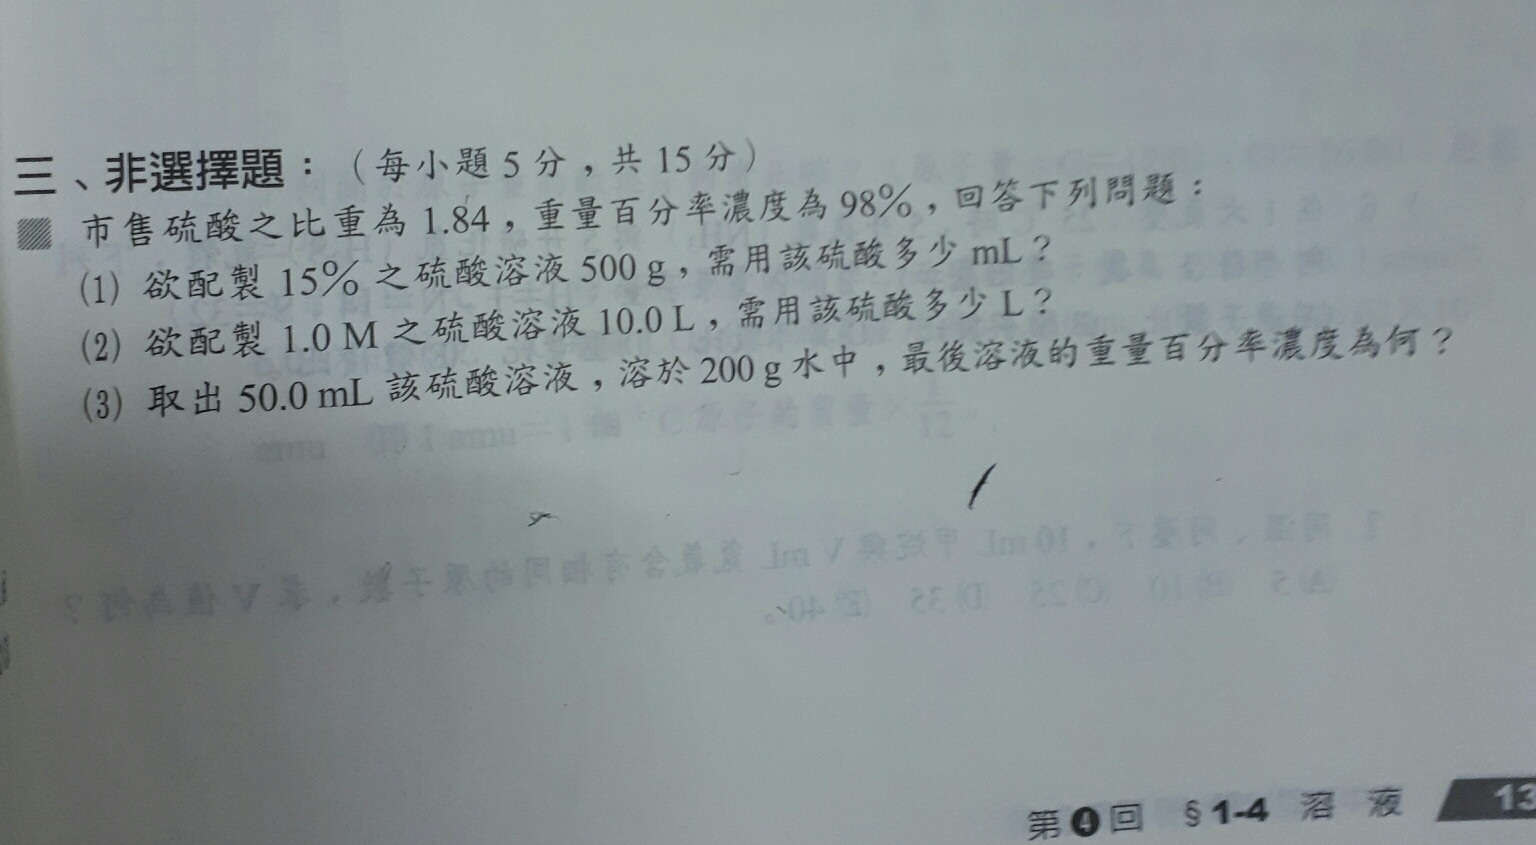 三、非選擇題：（每小題 5 分，共 15 分）
市售硫酸之比重為 1.84，重量百分率濃度為 98%，回答下列問題：
(1) 欲配製 15% 之硫酸溶液 500 g，需用該硫酸多少 mL？
(2) 欲配製 1.0 M 之硫酸溶液 10.0 L，需用該硫酸多少 L？
(3) 取出 50.0 mL 該硫酸溶液，溶於 200 g 水中，最後溶液的重量百分率濃度為何？
第❹回 §1-4 溶 液 13